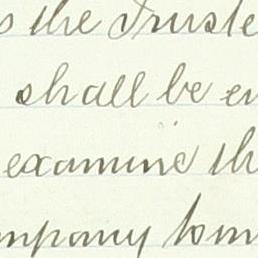 s the Truste
shall be en
examine th
ompany to m